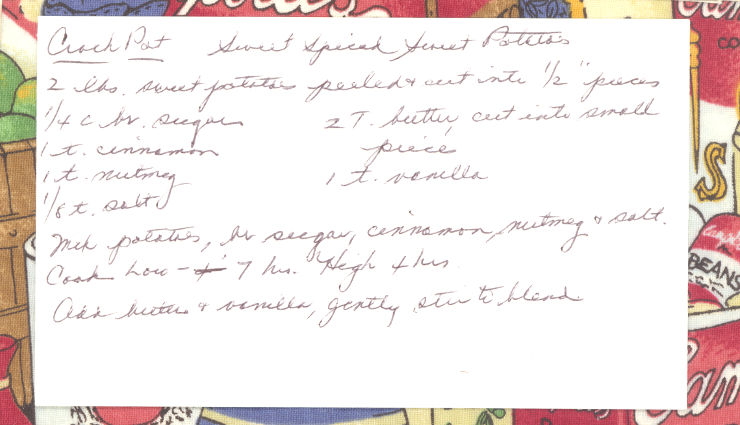 Crock Pot Sweet Spiced Sweet Potatoes
2 lbs. sweet potatoes peeled & cut into 1/2" pieces
1/4 c br. sugar 2 T. butter, cut into small
1 t. cinnamon piece
1 t. nutmeg 1 t. vanilla
1/8 t. salt
Mix potatoes, br sugar, cinnamon, nutmeg & salt.
Cook Low - 7 hrs. High 4 hrs
Add butter & vanilla, gently stir to blend
CO
S
Campbell
BEANS
Cam